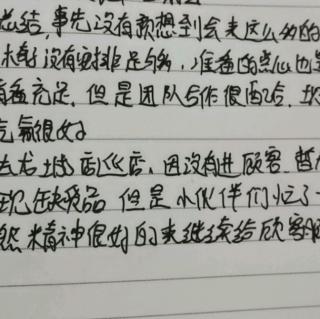 总结,事先没有预想到会来这么多的
没有安排足够,准备的点心也
充足,但是团队合作很
气氛很好
去龙 店巡店,因没有进顾客
现 品 但是小伙伴们忙了一
然精神很好的来继续给顾客